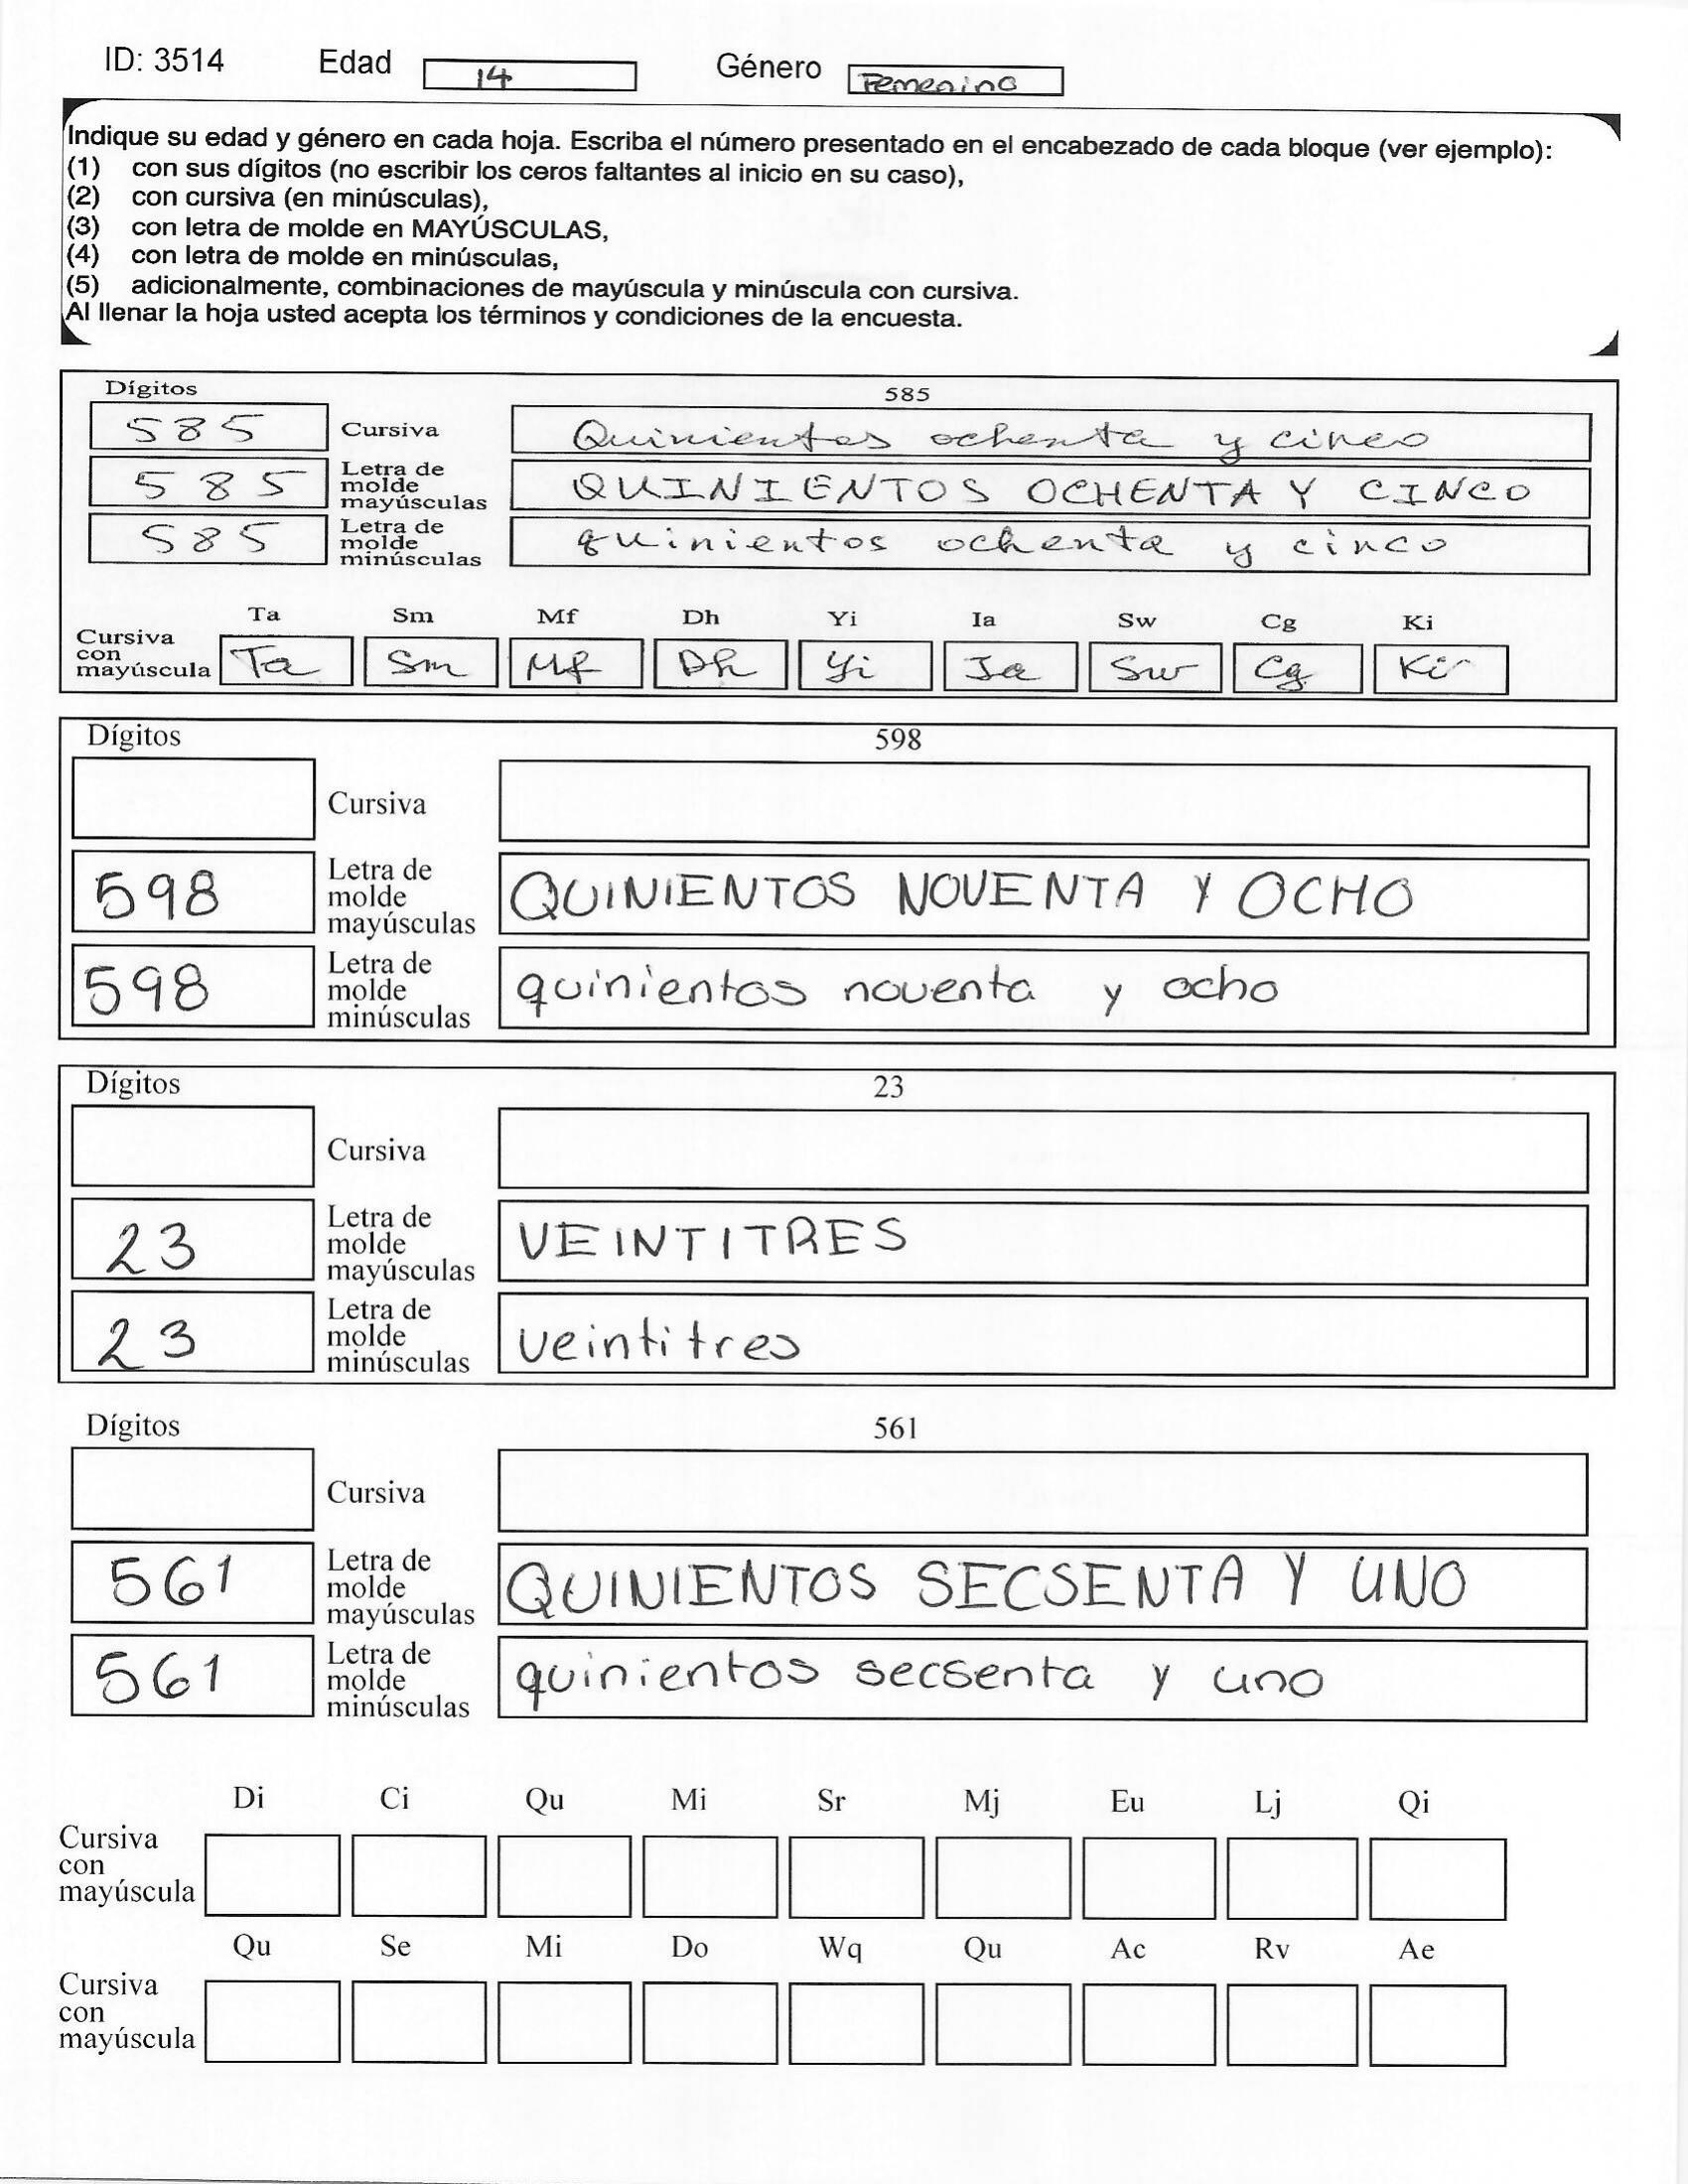 ID: 3514 Edad 14 Género Femenino
Indique su edad y género en cada hoja. Escriba el número presentado en el encabezado de cada bloque (ver ejemplo):
(1) con sus dígitos (no escribir los ceros faltantes al inicio en su caso),
(2) con cursiva (en minúsculas),
(3) con letra de molde en MAYÚSCULAS,
(4) con letra de molde en minúsculas,
(5) adicionalmente, combinaciones de mayúscula y minúscula con cursiva.
Al llenar la hoja usted acepta los términos y condiciones de la encuesta.
Dígitos 585
585 Cursiva Quinientos ochenta y cinco
585 Letra de molde mayúsculas QUINIENTOS OCHENTA Y CINCO
585 Letra de molde minúsculas quinientos ochenta y cinco
Ta Sm Mf Dh Yi Ia Sw Cg Ki
Cursiva con mayúscula Ta Sm Mf Dh Yi Ia Sw Cg Ki
Dígitos 598
Cursiva
598 Letra de molde mayúsculas QUINIENTOS NOVENTA Y OCHO
598 Letra de molde minúsculas quinientos noventa y ocho
Dígitos 23
Cursiva
23 Letra de molde mayúsculas VEINTITRES
23 Letra de molde minúsculas veintitres
Dígitos 561
Cursiva
561 Letra de molde mayúsculas QUINIENTOS SECSENTA Y UNO
561 Letra de molde minúsculas quinientos secsenta y uno
Di Ci Qu Mi Sr Mj Eu Lj Qi
Cursiva con mayúscula
Qu Se Mi Do Wq Qu Ac Rv Ae
Cursiva con mayúscula